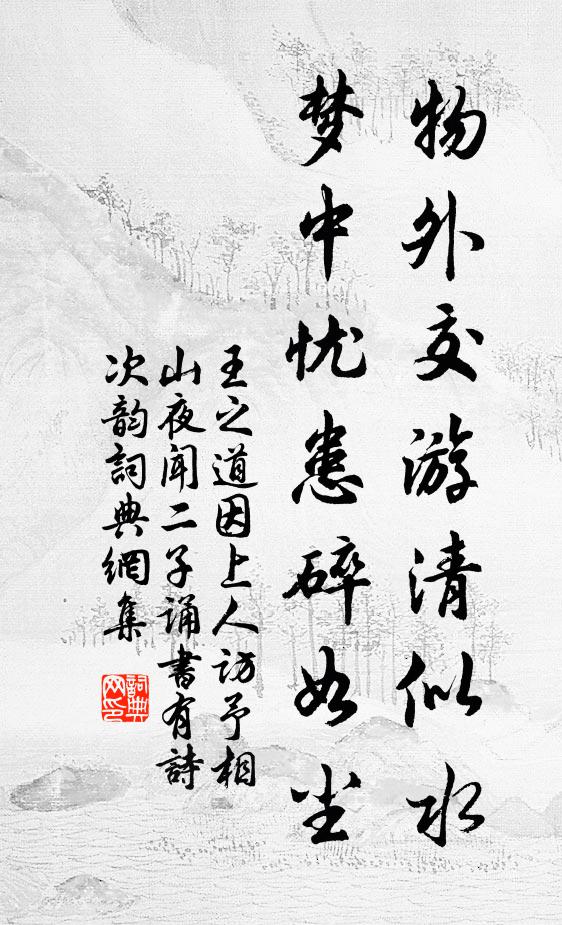 物外交游清似水
梦中忧患碎如尘
王之道因上人访予相
山夜闻二子诵書有詩
次韵詞典網集
詞典
网印